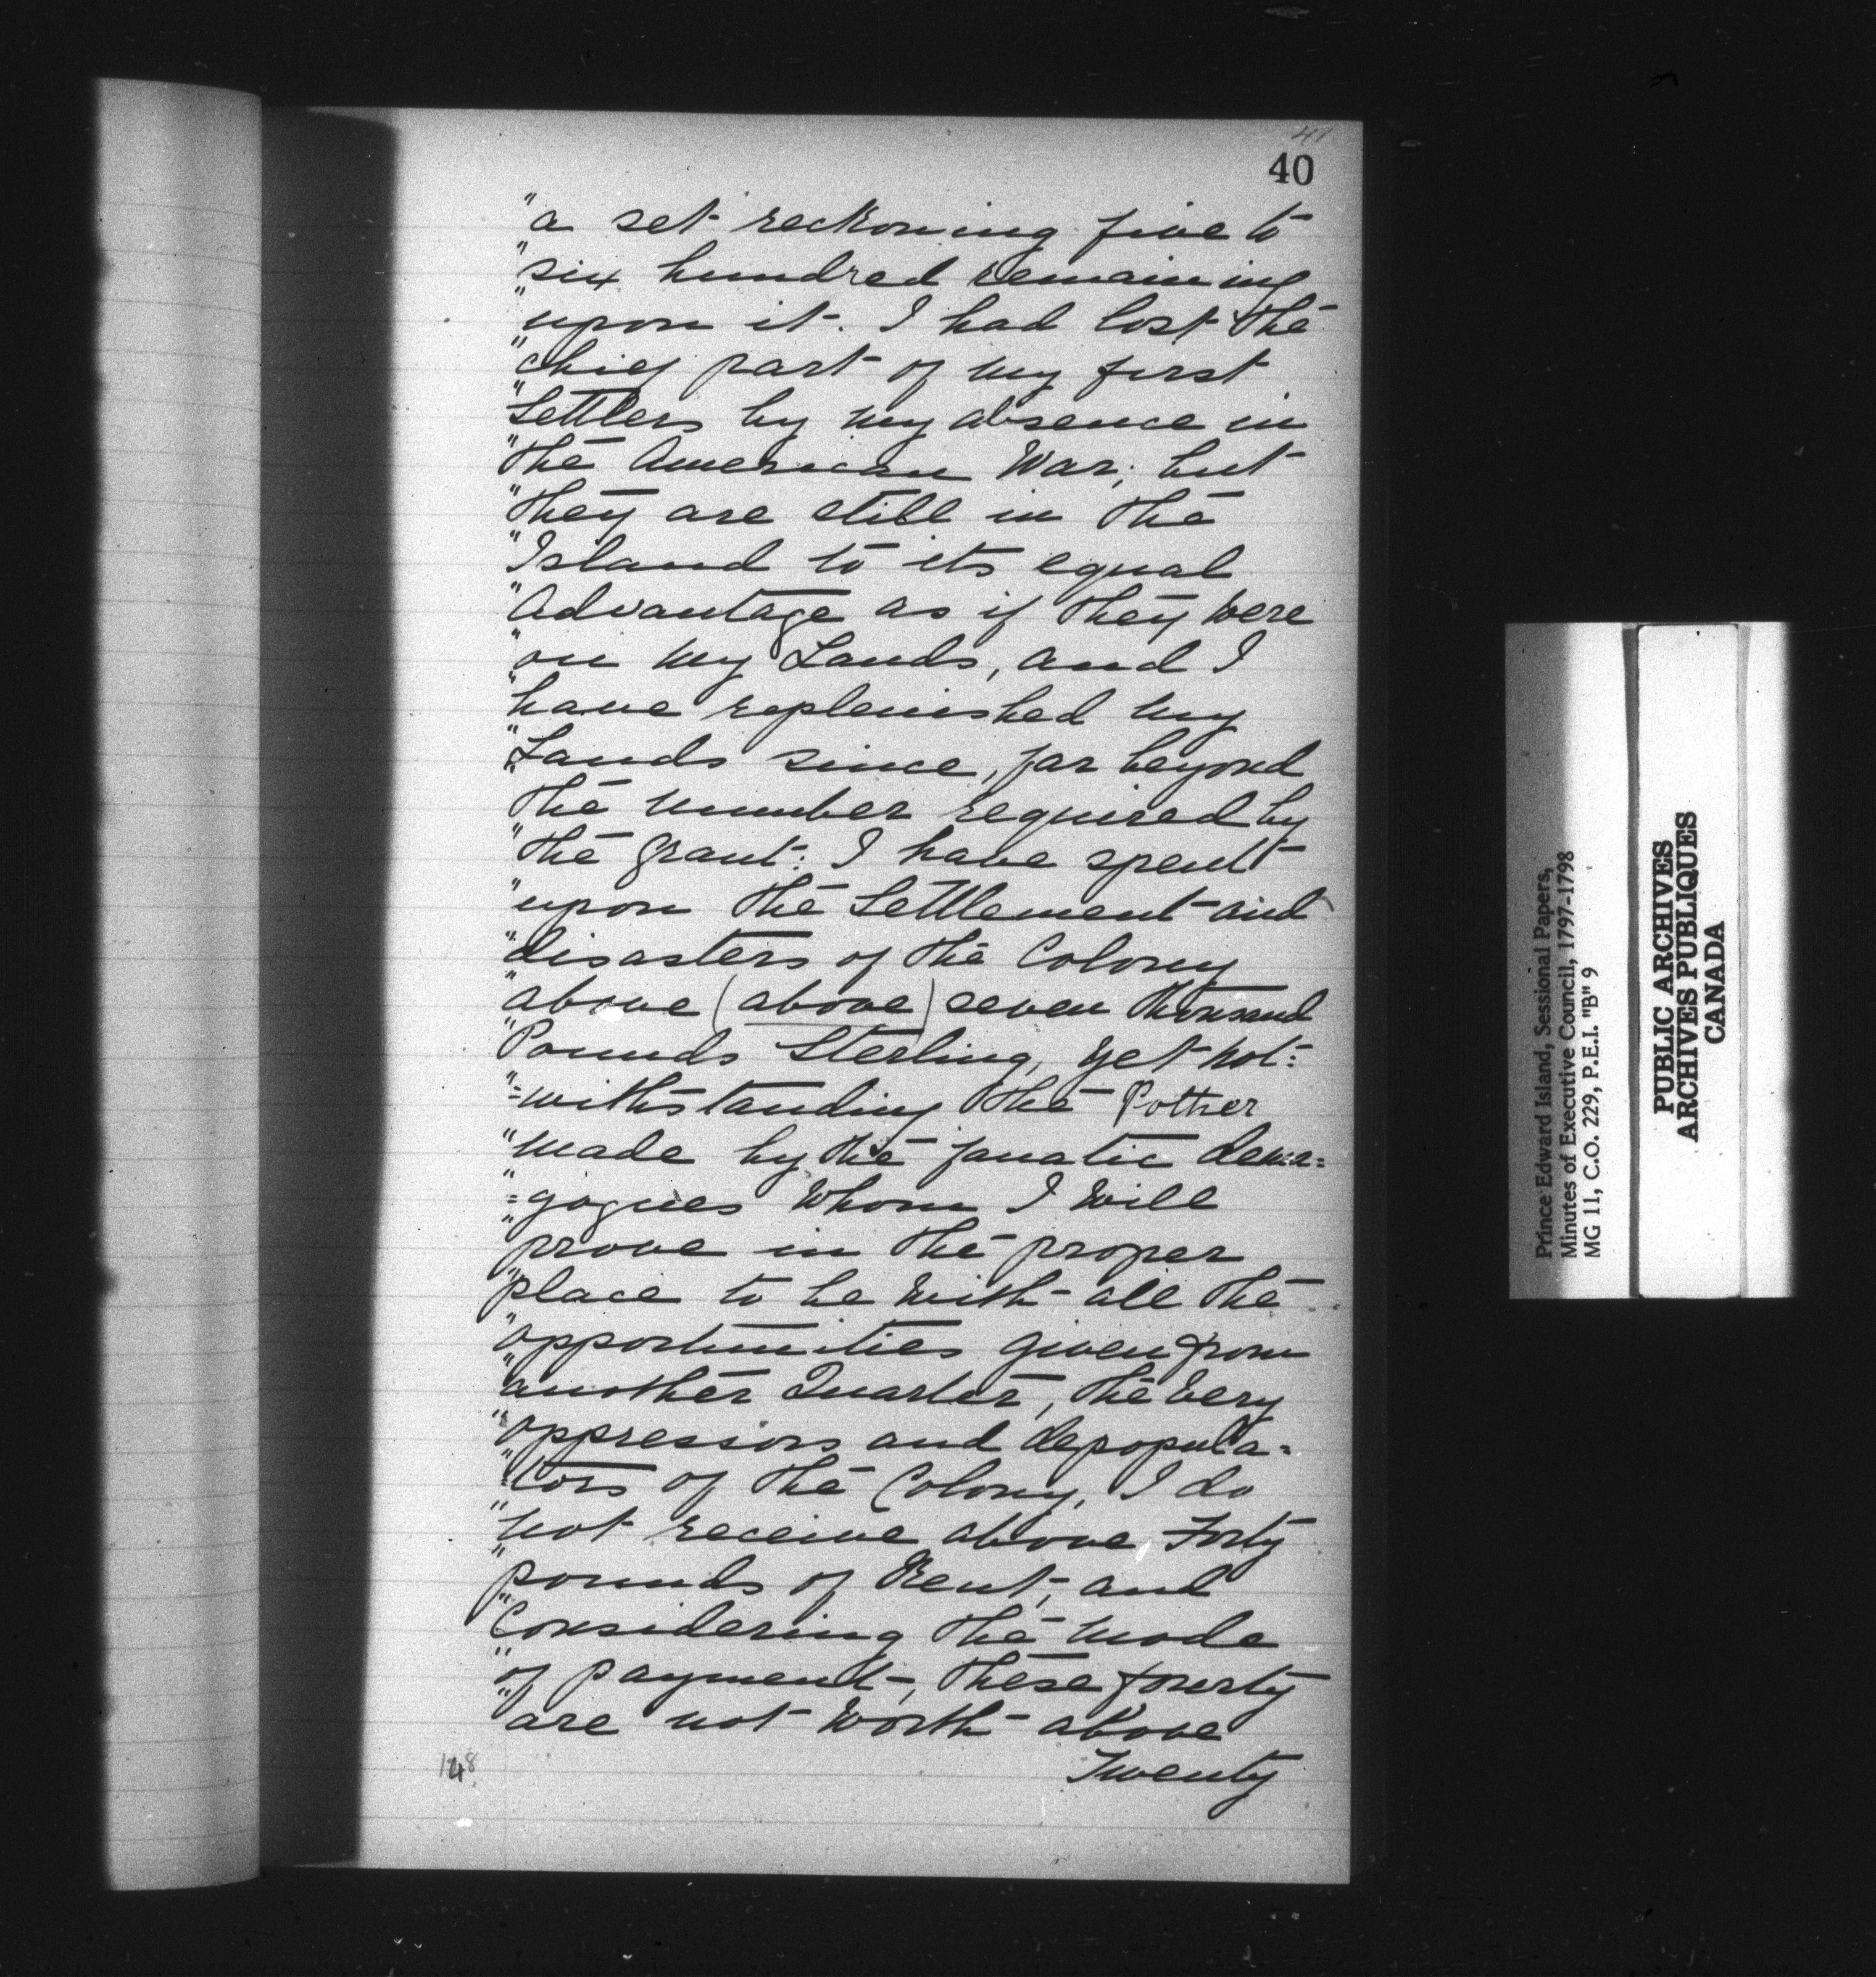 41
40
"a set reckoning five to
"six hundred remaining
"upon it. I had lost the
"chief part of my first
"Settlers by my absence in
"the American War; but
"they are still in the
"Island to its equal
"Advantage as if they were
"on my Lands, and I
"have replenished my
"Lands since, far beyond
"the number required by
"the Grant: I have spent
"upon the Settlement and
"disasters of the Colony
"above (above) seven thousand
"Pounds Sterling, yet not=
"=withstanding the Pother
"made by the fanatic dema=
"=gogues whom I will
"prove in the proper
"place to be with all the
"opportunities given from
"another Quarter, the very
"oppressors and depopula=
"tors of the Colony, I do
"not receive above Forty
"pounds of Rent, and
"Considering the mode
"of payment, these foverty
"are not worth above
Twenty
148
Prince Edward Island, Sessional Papers,
Minutes of Executive Council, 1797-1798
MG 11, C.O. 229, P.E.I. "B" 9
PUBLIC ARCHIVES
ARCHIVES PUBLIQUES
CANADA